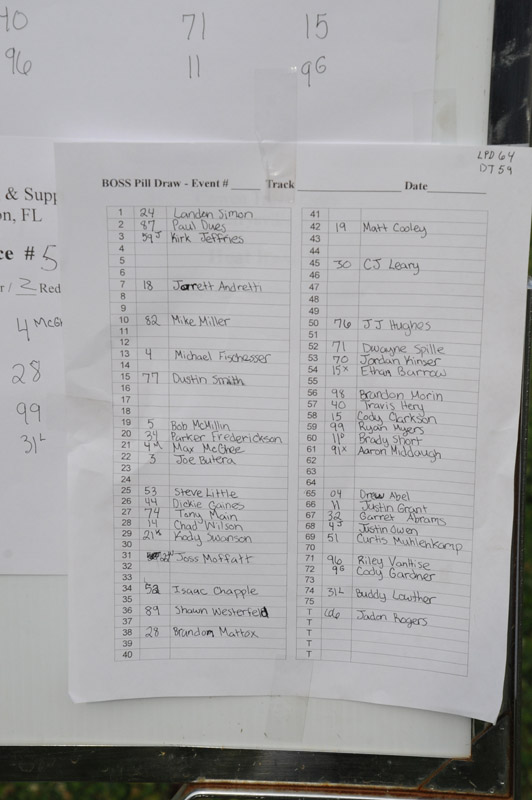 40 71 15
96 11 9G
& Supp
on, FL
ce # 5
r / 3 Red
4 McGh
28
99
31L
LPD 64
DT 59
BOSS Pill Draw - Event # ____ Track ____________ Date________
1 24 Landen Simon
2 87 Paul Dues
3 59J Kirk Jeffries
4
5
6
7 18 Jarrett Andretti
8
9
10 82 Mike Miller
11
12
13 4 Michael Fischesser
14
15 77 Dustin Smith
16
17
18
19 5 Bob McMillin
20 34 Parker Frederickson
21 4M Max McGhee
22 3 Joe Butera
23
24
25 53 Steve Little
26 44 Dickie Gaines
27 74 Tony Main
28 14 Chad Wilson
29 21K Kody Swanson
30
31 Joss Moffatt
32
33
34 52 Isaac Chapple
35
36 89 Shawn Westerfeld
37
38 28 Brandon Mattox
39
40
41
42 19 Matt Cooley
43
44
45 30 CJ Leary
46
47
48
49
50 76 JJ Hughes
51
52 71 Dwayne Spille
53 70 Jordan Kinser
54 15x Ethan Barrow
55
56 98 Brandon Morin
57 40 Travis Hery
58 15 Cody Clarkson
59 99 Ryan Myers
60 11P Brady Short
61 91x Aaron Middaugh
62
63
64
65 04 Drew Abel
66 11 Justin Grant
67 32 Garret Abrams
68 4J Justin Owen
69 51 Curtis Muhlenkamp
70
71 96 Riley VanHise
72 9G Cody Gardner
73
74 31L Buddy Lowther
75
T 66 Jadon Rogers
T
T
T
T